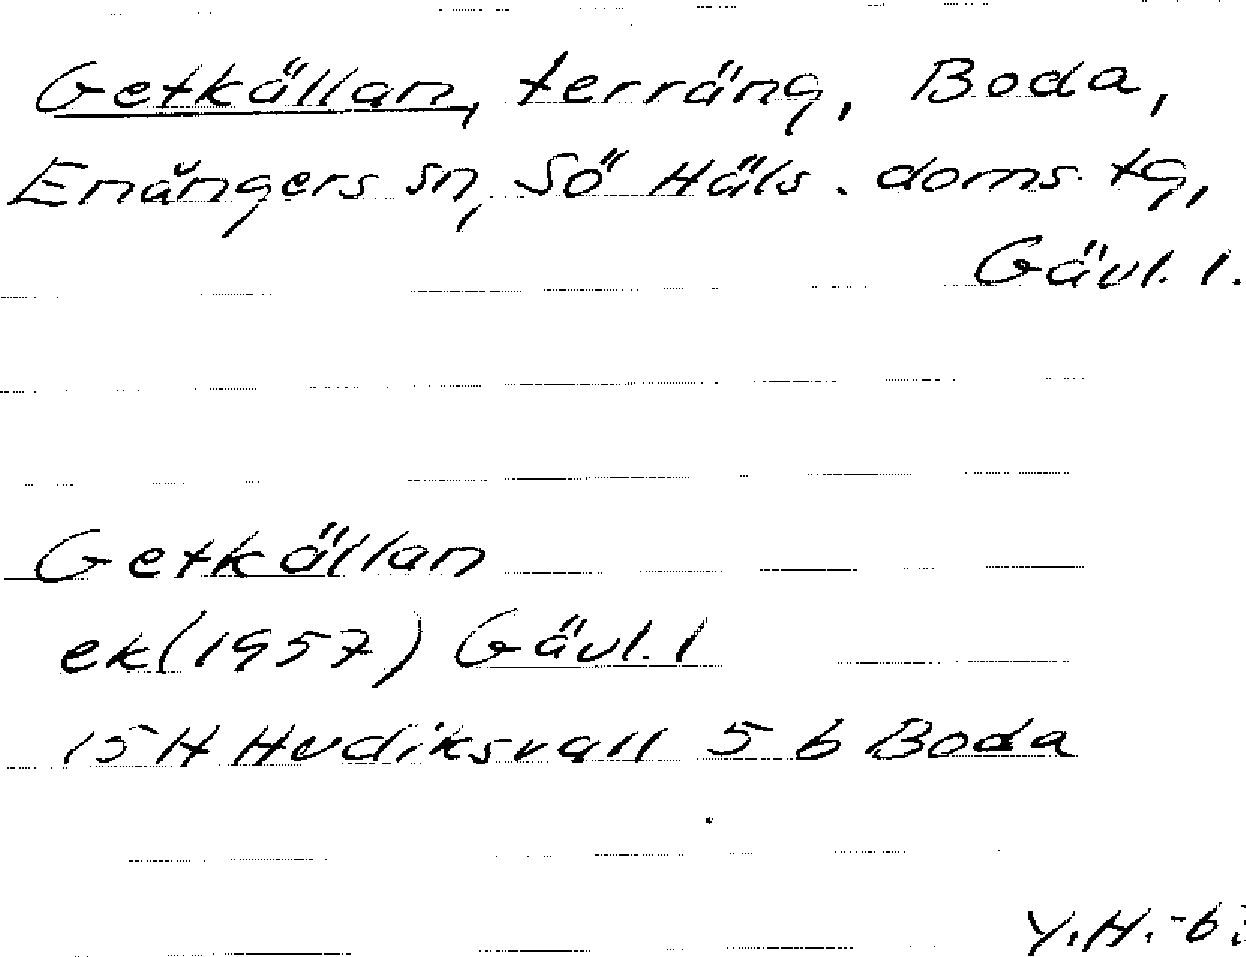 Getkällan, terräng, Boda,
Enångers sn, Sö Häls. doms. tg,
Gävl. l.
Getkällan
ek (1957) Gävl. l
15 H Hudiksvall 5 b Boda
Y.H.